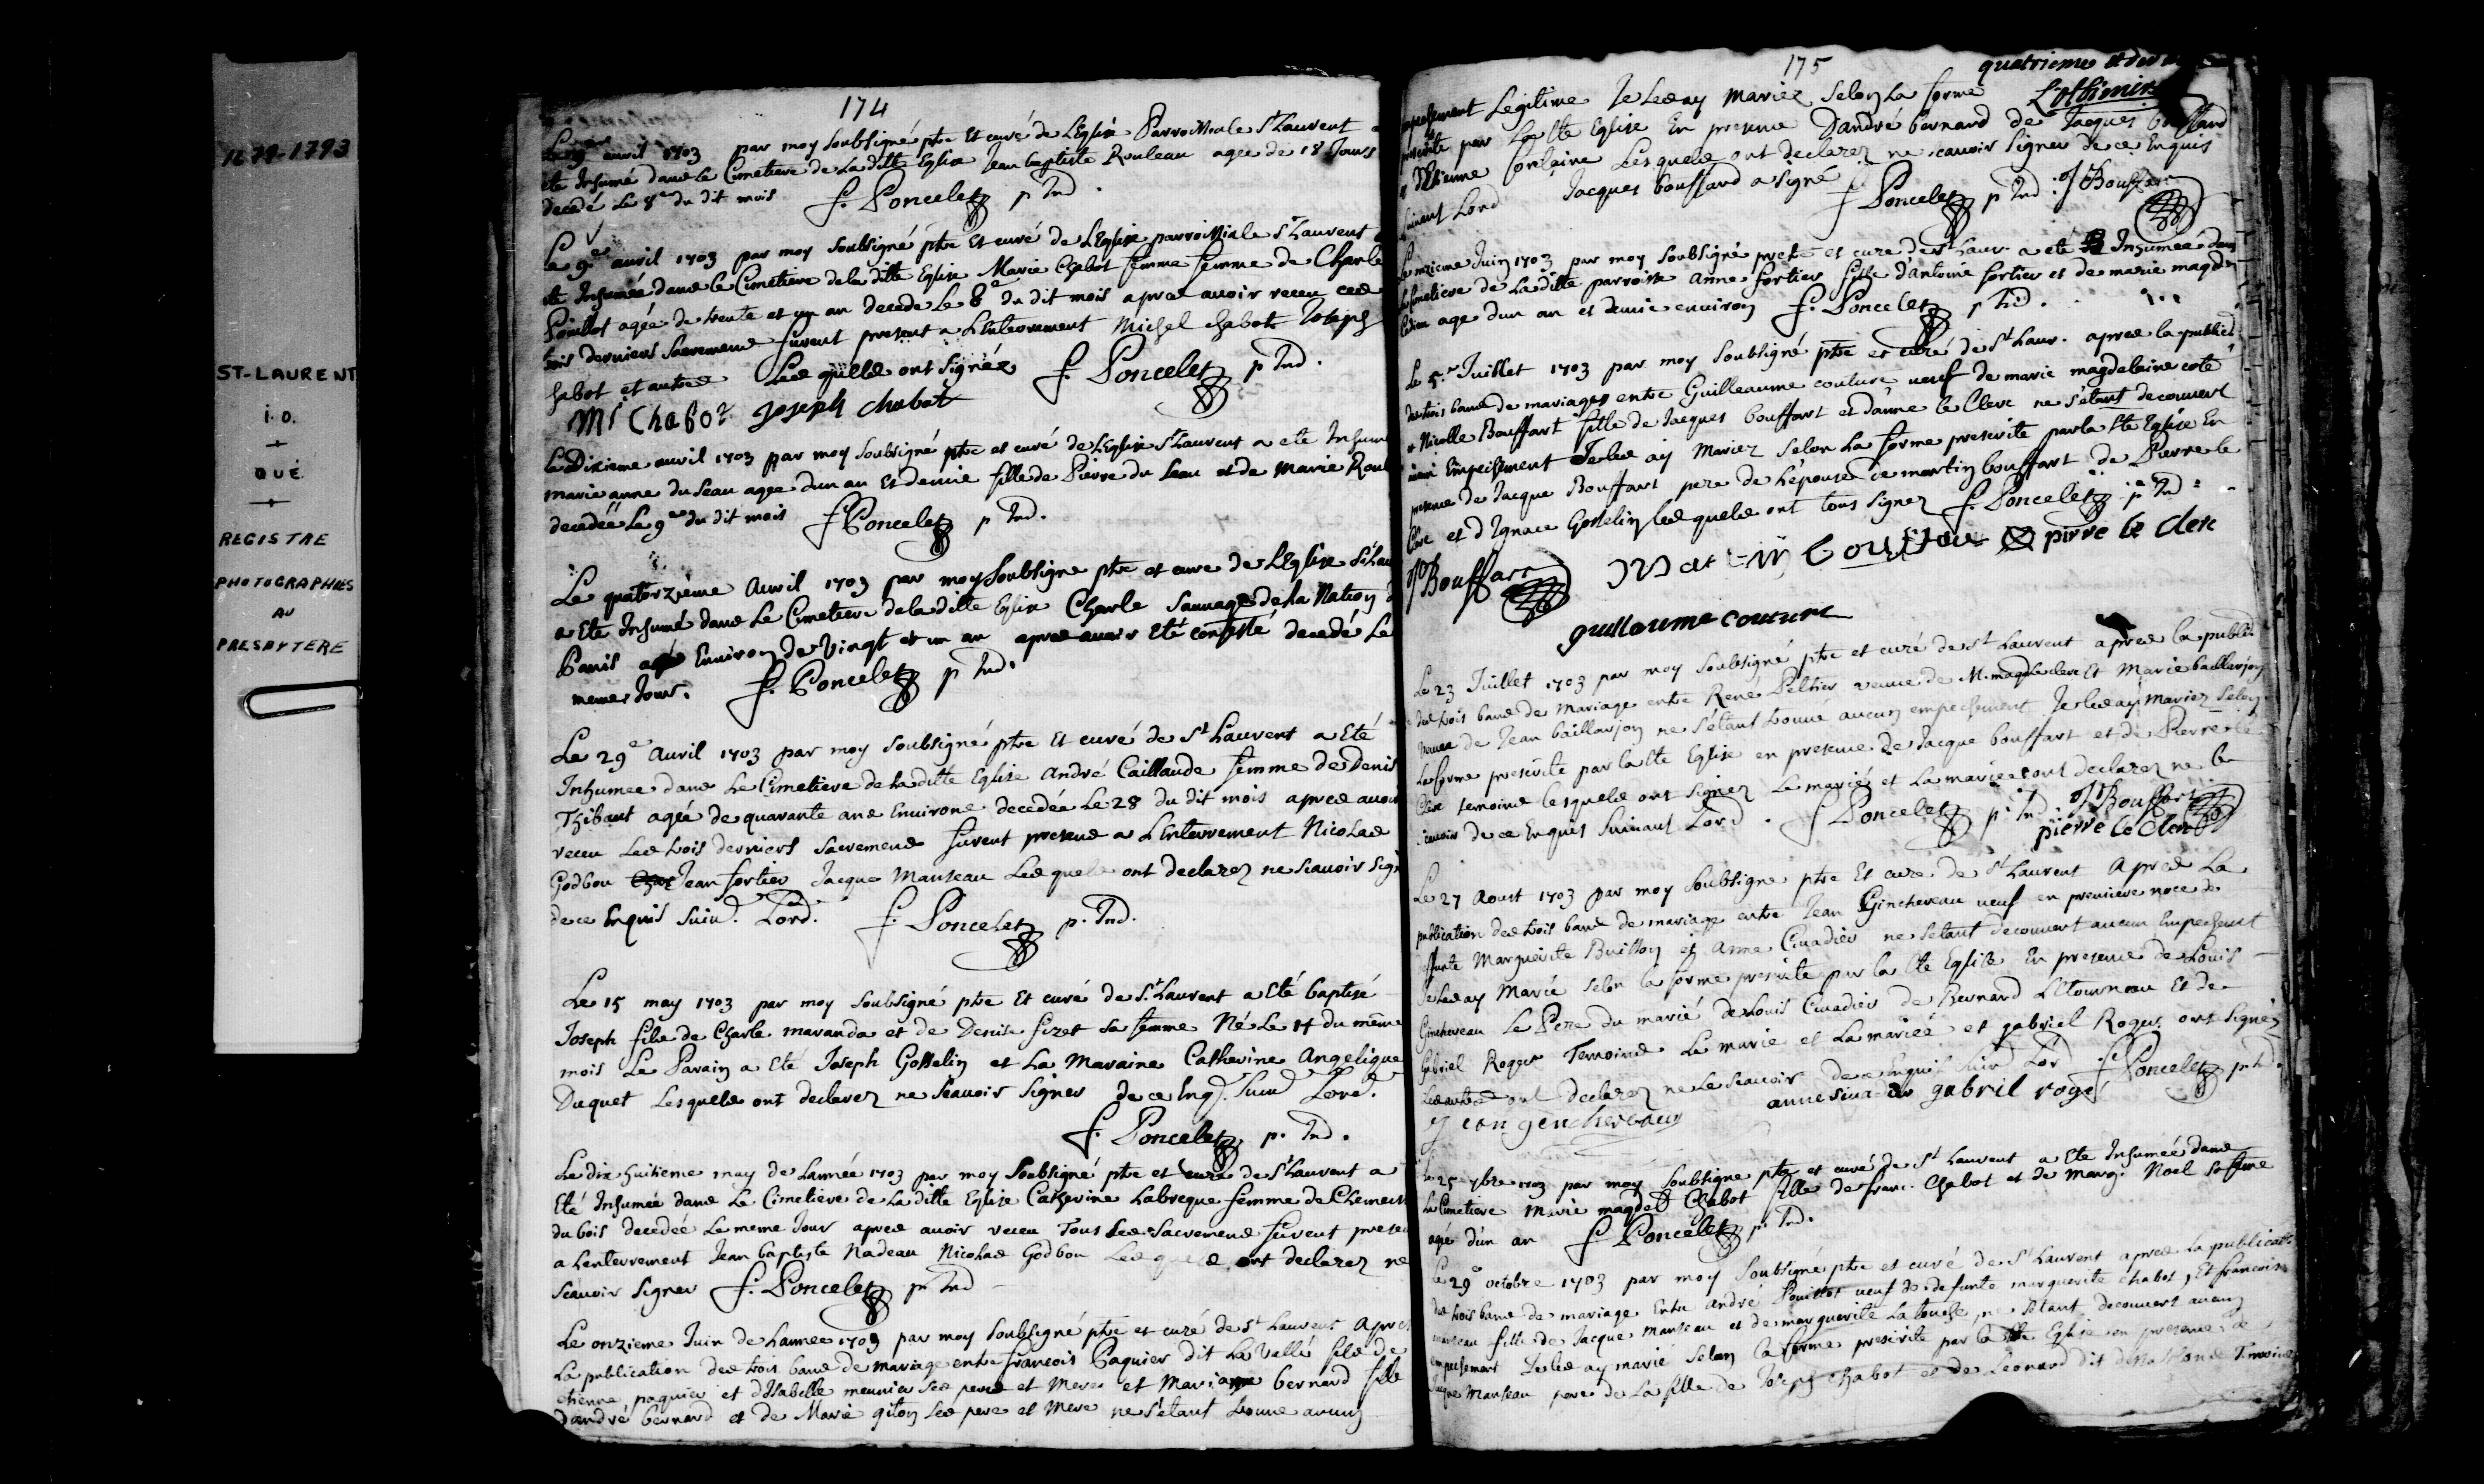 1679-1793
ST-LAURENT
I.O.
QUÉ.
REGISTRE
PHOTOGRAPHIÉS
AU
PRESBYTERE
174
Le 9e avril 1703 par moy soubsigné ptre et curé de L'Eglise Parroissiale St Laurent a
ete Inhumé dans le Cimetiere de La ditte Eglise Jean baptiste Rouleau agee de 18 Jours
decedé Le 8e du dit mois f. Poncelet p Ind.
Le 9e avril 1703 par moy soubsigné ptre et curé de L'Eglise parroissiale St Laurent a
ete Inhumée dans le Cimetiere de la ditte Eglise Marie Chabot femme femme de Charle
Pouillot agée de trente et un an decede Le 8e du dit mois apres avoir receu ces
trois derniers sacremens furent present a L'Enterrement Michel chabot Joseph
chabot et autres Les quels ont signéz f. Poncelet p Ind.
Ml Chabot Joseph chabot
Le Dixieme avril 1703 par moy soubsigné ptre et curé de L'Eglise St Laurent a ete Inhum
marie anne du seau agee dun an et demie fille de Pierre du seau et de Marie Roul
decedée Le 9e du dit mois f Poncelet p Ind.
Le quatorzieme Avril 1703 par moy Soubsigne ptre et cure de L'Eglise St Lau
a Ete Inhumé dans Le Cimetiere de la ditte Eglise Charle Sauvage de la Nation d
Panis agé Environ de vingt et un an apres avoir Eté confessé decedé Le
meme Jour. f. Poncelet p Ind.
Le 29e Avril 1703 par moy soubsigné ptre et curé de St Laurent a Eté
Inhumee dans Le Cimetiere de la ditte Eglise André Caillaude femme de Denis
Thibaut agée de quarante ans Environs decedée Le 28 du dit mois apres avoir
receu Les trois derniers sacremens furent presens a L'Enterrement Nicolas
Godbou Jean fortier Jacque Manseau Les quels ont declarez ne scavoir sign
de ce Enquis suivd. Lord. f. Poncelet p. Ind.
Le 15 may 1703 par moy soubsigné ptre et curé de St Laurent a Eté baptisé
Joseph fils de Charle maranda et de Denise fizet sa femme Né Le 14 du même
mois Le Parain a Ete Joseph Gosselin et La Maraine Catherine Angelique
Duquet Lesquels ont declarez ne scavoir signer de ce Enq. suivd Lord.
f. Poncelet p. Ind.
Le dix huitieme may de Lannée 1703 par moy Soubsigné ptre et curé de St Laurent a
Eté Inhumée dans Le Cimetiere de La ditte Eglise Catherine Labreque femme de Clement
du bois decedeé Le meme Jour apres avoir receu Tous Les Sacremens furent presen
a Lenterrement Jean baptiste Nadeau Nicolas Godbou Les quels ont declarez ne
scavoir signer f. Poncelet p Ind
Le onzieme Juin de Lannee 1703 par moy soubsigné ptre et curé de St Laurent Apres
La publication des trois bans de mariage entre francois Paquier dit La Vallé fils de
etienne paquier et d'Isabelle meunier ses peres et Mere et Marianne bernard fille
dandré bernard et de Marie giton ses pere et Mere ne s'étant trouve aucun
175
quatrieme et
Lotbiniere
empechement Legitime Je Les ay Mariez selon La forme
prescrite par La Ste Eglise En presence Dandré bernard de Jacques bouffard
d'Etienne fontaine Les quels ont declarez ne scavoir signer de ce Enquis
suivant Lord Jacques bouffard a signé f Poncelet p Ind. J Bouffar
Le juin 1703 par moy soubsigné pretre et curé de St Laur. a eté Inhumée dans
Le Cimetiere de La ditte parroisse anne fortier fille d'Antoine fortier et de marie magd
age dun an et demie environ f. Poncelet p Ind.
Le 5e Juillet 1703 par moy soubsigné ptre et curé de St Laur. apres la public
des trois bans de mariages entre Guilleaume couture veuf de marie magdelaine coté
et Nicolle Bouffart fille de Jacques bouffart et d'anne le Clerc ne s'étant decouvert
aucun Empechement Je les ay Mariez selon La forme prescrite par la Ste Eglise En
presence de Jacque Bouffart pere de L'épouse de martin bouffart de Pierre le
Clerc et d'Ignace Gosselin les quels ont tous signez f. Poncelet p Ind
J Bouffart Martin bouffar pierre le clerc
guillaume couture
Le 23 Juillet 1703 par moy soubsigné ptre et curé de St Laurent apres la public
des trois bans de Mariage entre René Peltier veuve de M. magd leclerc Et Marie baillarjon
veuve de Jean baillarjon ne s'étant trouvé aucun empechement Je les ay Mariez selon
La forme prescrite par la Ste Eglise en presence de Jacque bouffart et de Pierre le
Clerc temoins lesquels ont signez Le mariéz et La mariee ont declarez ne le
scavoir de ce Enquis suivant Lord. f Poncelet p. Ind. J Bouffart
pierre le clerc
Le 27 Aoust 1703 par moy soubsigne ptre Et curé de St Laurent Apres La
publication des trois bans de mariage entre Jean Ginchereau veuf en premiere noce de
deffunte Marguerite Buisson et Anne Civadier ne s'etant decouvert aucun Empechemt
Je Les ay Marié selon la forme prescrite par la Ste Eglise En presence de Louis
Ginchereau Le Pere du marié de Louis Civadier de Bernard Létourneau Et de
Gabriel Roger Temoins Le marié et La mariée et gabriel Roger ont signez
Les autres ont declarez ne Le scavoir de ce Enquis suiv Lor f. Poncelet p Ind.
Jean genchercaux anne siuadier gabril roge
Le 25 7bre 1703 par moy soubsigné ptre et curé de St Laurent a Ete Inhumée dans
Le Cimetiere Marie magdel Chabot fille de franc. Chabot et de Marg. Noel sa fame
agé d'un an f Poncelet p. Ind.
Le 29e octobre 1703 par moy soubsigné ptre et curé de St Laurent apres la publicatio
des trois bans de mariage Entre andré Pouillot veuf de defunte marguerite chabot, Et francoise
manseau fille de Jacque manseau et de marguerite Latouche, ne s'étant decouvert aucun
empechement Je les ay marié selon la forme prescrite par la Ste Eglise en presence de
Jacque Manseau pere de La fille de Joseph Chabot et de Leonard dit Temoins